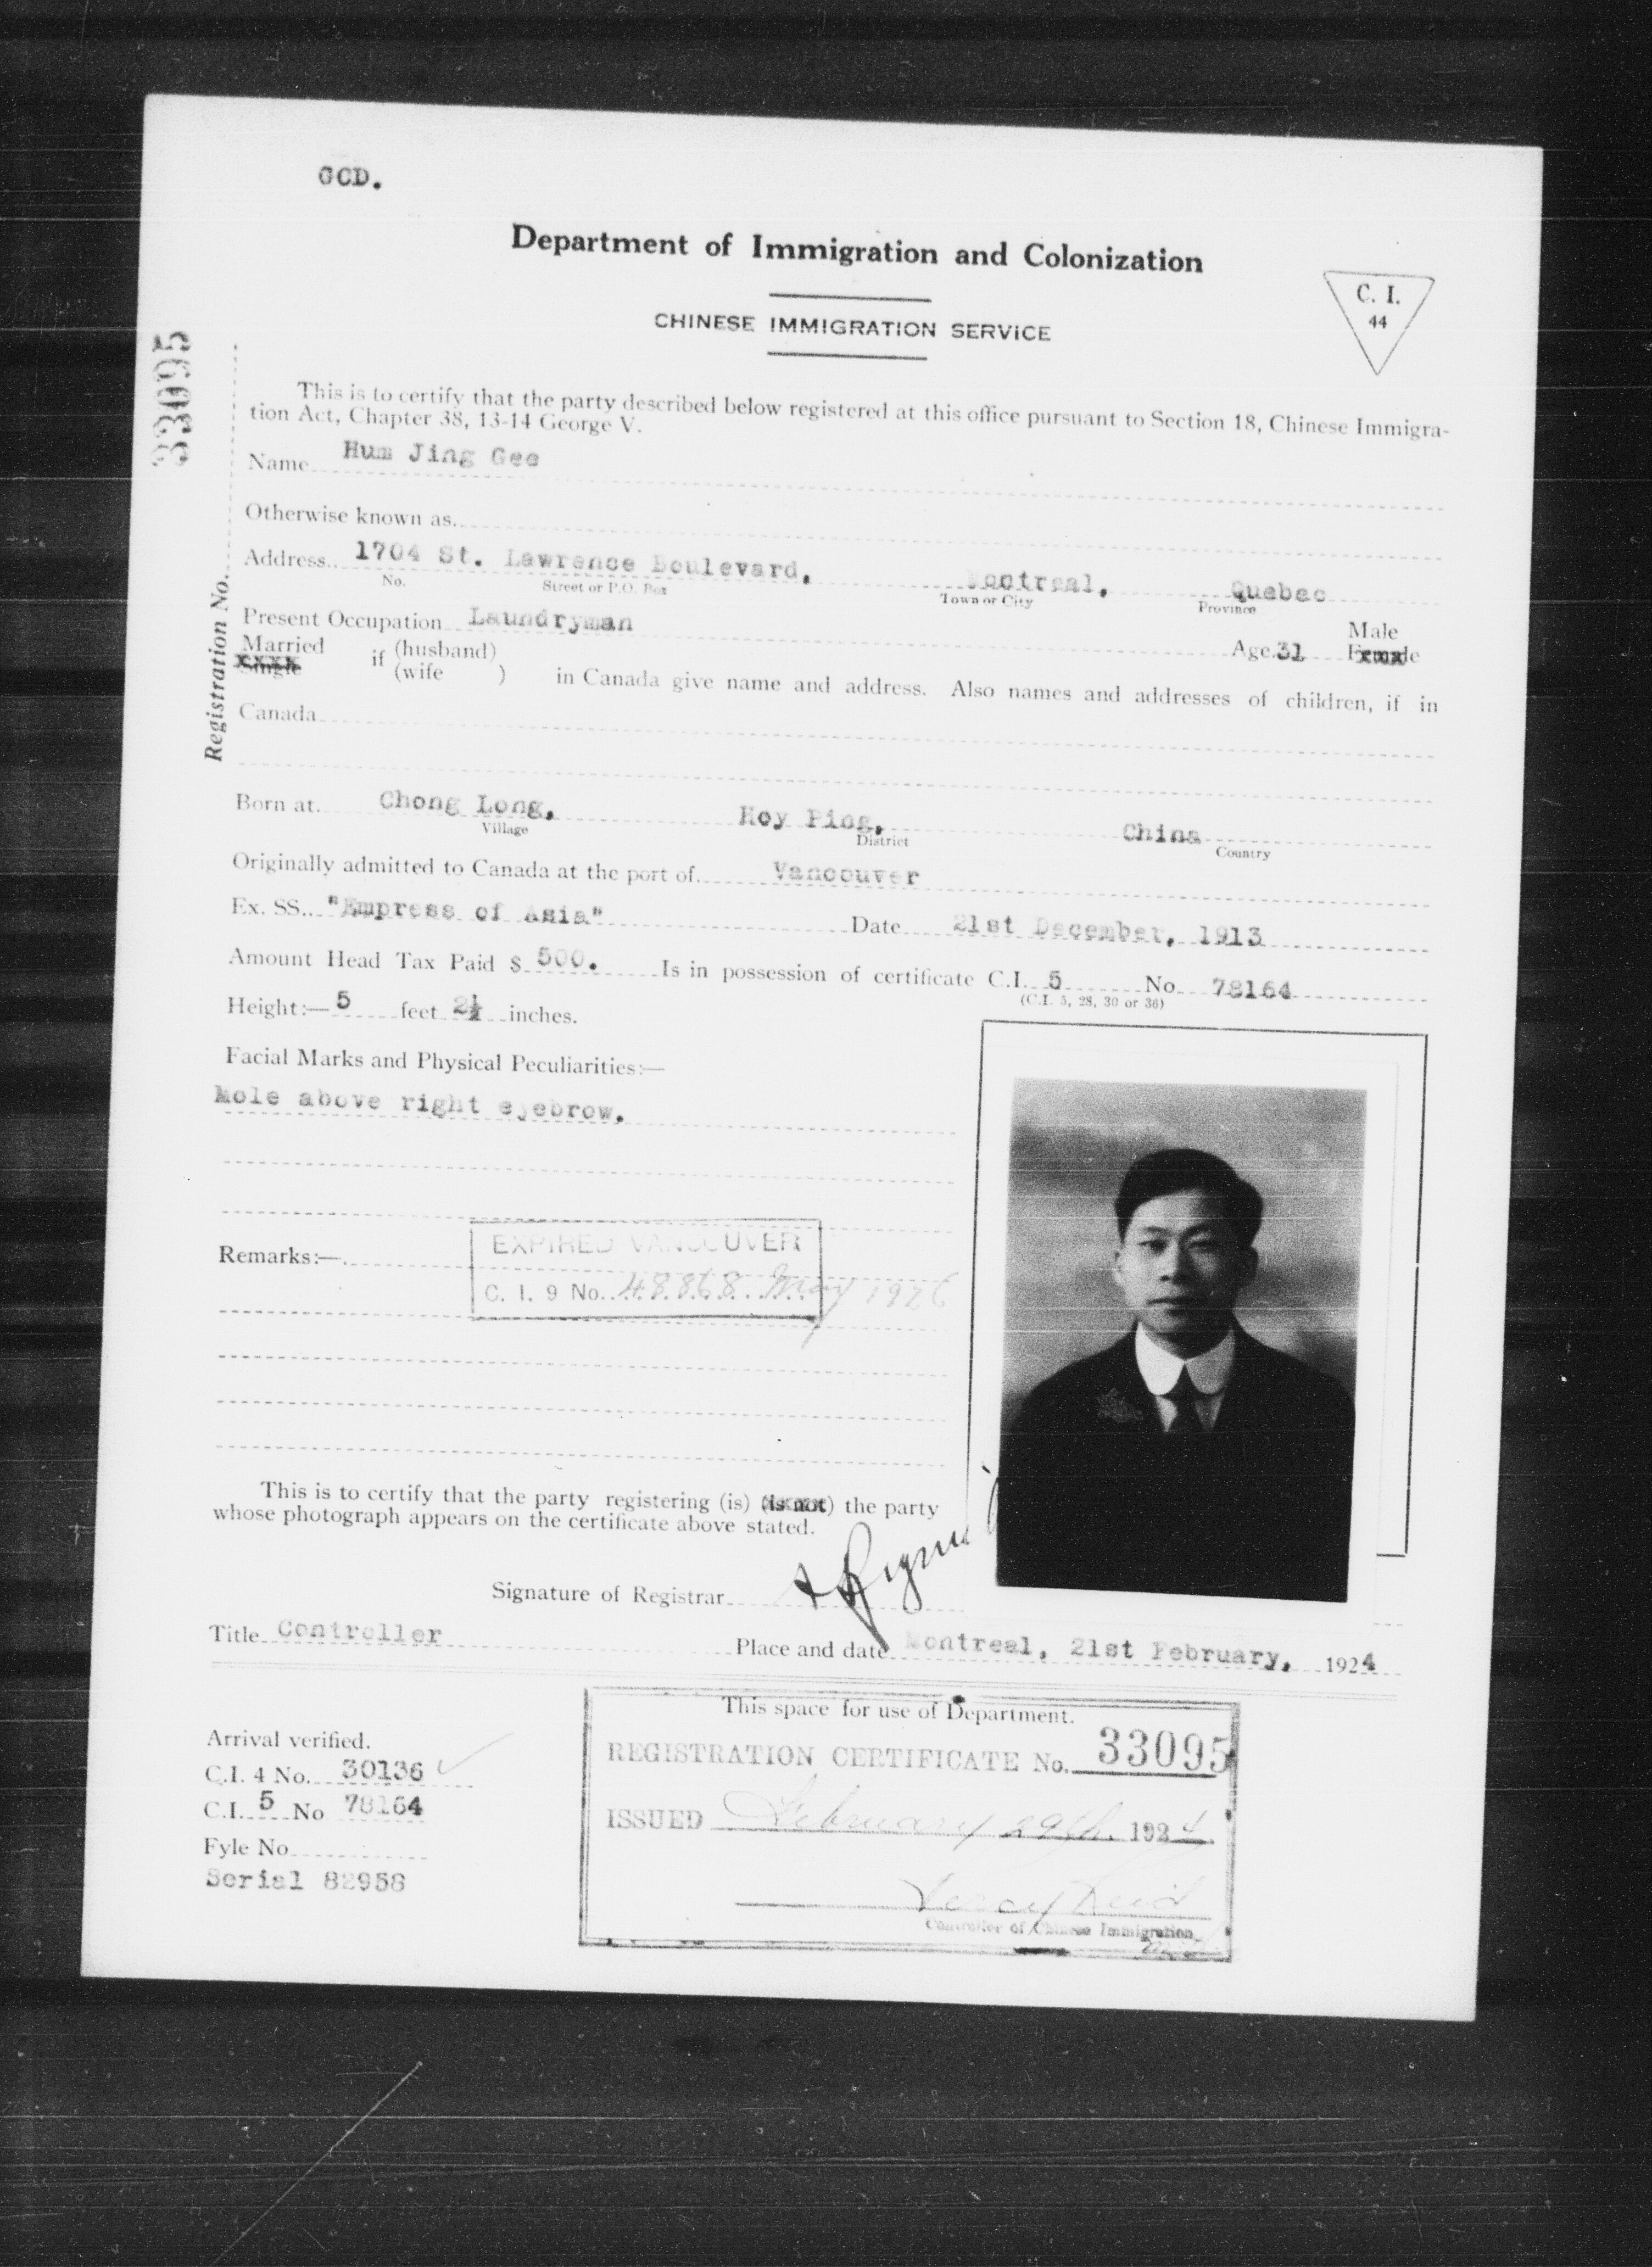 GCD.
Department of Immigration and Colonization
CHINESE IMMIGRATION SERVICE
C. I.
44
33095
Registration No.
This is to certify that the party described below registered at this office pursuant to Section 18, Chinese Immigra-
tion Act, Chapter 38, 13-14 George V.
Name Hum Jing Gee
Otherwise known as
Address 1704 St. Lawrence Boulevard, Montreal, Quebec
No. Street or P.O. Box Town or City Province
Present Occupation Laundryman Age 31 Male
Female
Married
Single if (husband)
(wife ) in Canada give name and address. Also names and addresses of children, if in
Canada
Born at Chong Long, Hoy Ping, China
Village District Country
Originally admitted to Canada at the port of Vancouver
Ex. SS. "Empress of Asia" Date 21st December, 1913
Amount Head Tax Paid $ 500. Is in possession of certificate C.I. 5 No 78164
(C.I. 5, 28, 30 or 36)
Height:— 5 feet 2½ inches.
Facial Marks and Physical Peculiarities:—
Mole above right eyebrow.
Remarks:—
EXPIRED VANCOUVER
C. I. 9 No. 48868 May 1926
This is to certify that the party registering (is) (is not) the party
whose photograph appears on the certificate above stated.
Signature of Registrar
Title Controller Place and date Montreal, 21st February, 1924
This space for use of Department.
REGISTRATION CERTIFICATE No. 33095
ISSUED February 29th. 1924.
Percy Reid
Controller of Chinese Immigration
Arrival verified.
C.I. 4 No. 30136 ✓
C.I. 5 No 78164
Fyle No
Serial 82958